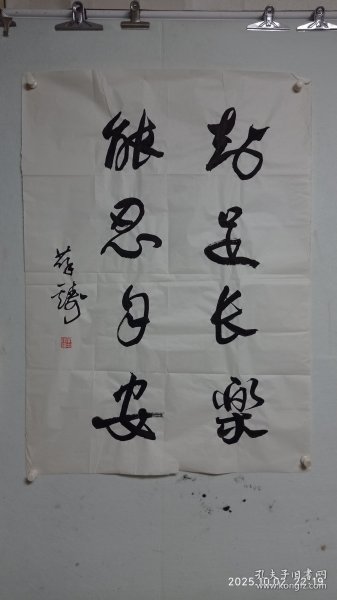 知足长樂
能忍自安
2025.10.02 22:19
孔夫子旧书网
kongfz.com